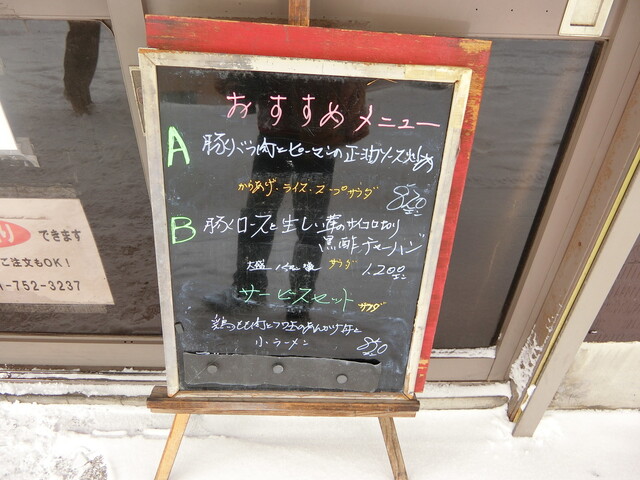 おすすめメニュー
A 豚バラ肉とピーマンの正油ソース炒め
からあげ・ライス・スープ サラダ 850
B 豚ロースと生しい茸のサイコロ切り
黒酢チャーハン
サラダ 1,200
サービスセット サラダ
鶏つくね肉とのあんかけ丼と
小ラーメン 850
り できます
ご注文もOK!
-752-3237